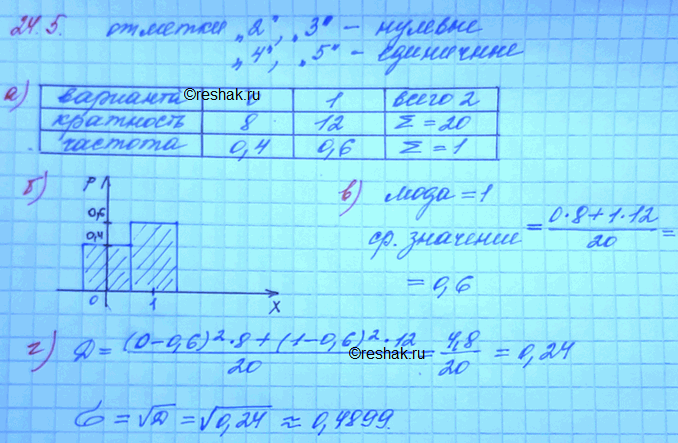 24.5. отметки „2", „3" – нулевые
„4", „5" – единичные
а)
варианта 0 1 всего 2
©reshak.ru
кратность 8 12 Σ = 20
частота 0,4 0,6 Σ = 1
б)
P
0,6
0,4
0 1 X
в) мода = 1
ср. значение = 0·8+1·12 / 20 =
= 0,6
г) D = (0–0,6)²·8+(1–0,6)²·12 / 20 = 4,8 / 20 = 0,24
©reshak.ru
σ = √D = √0,24 ≈ 0,4899.